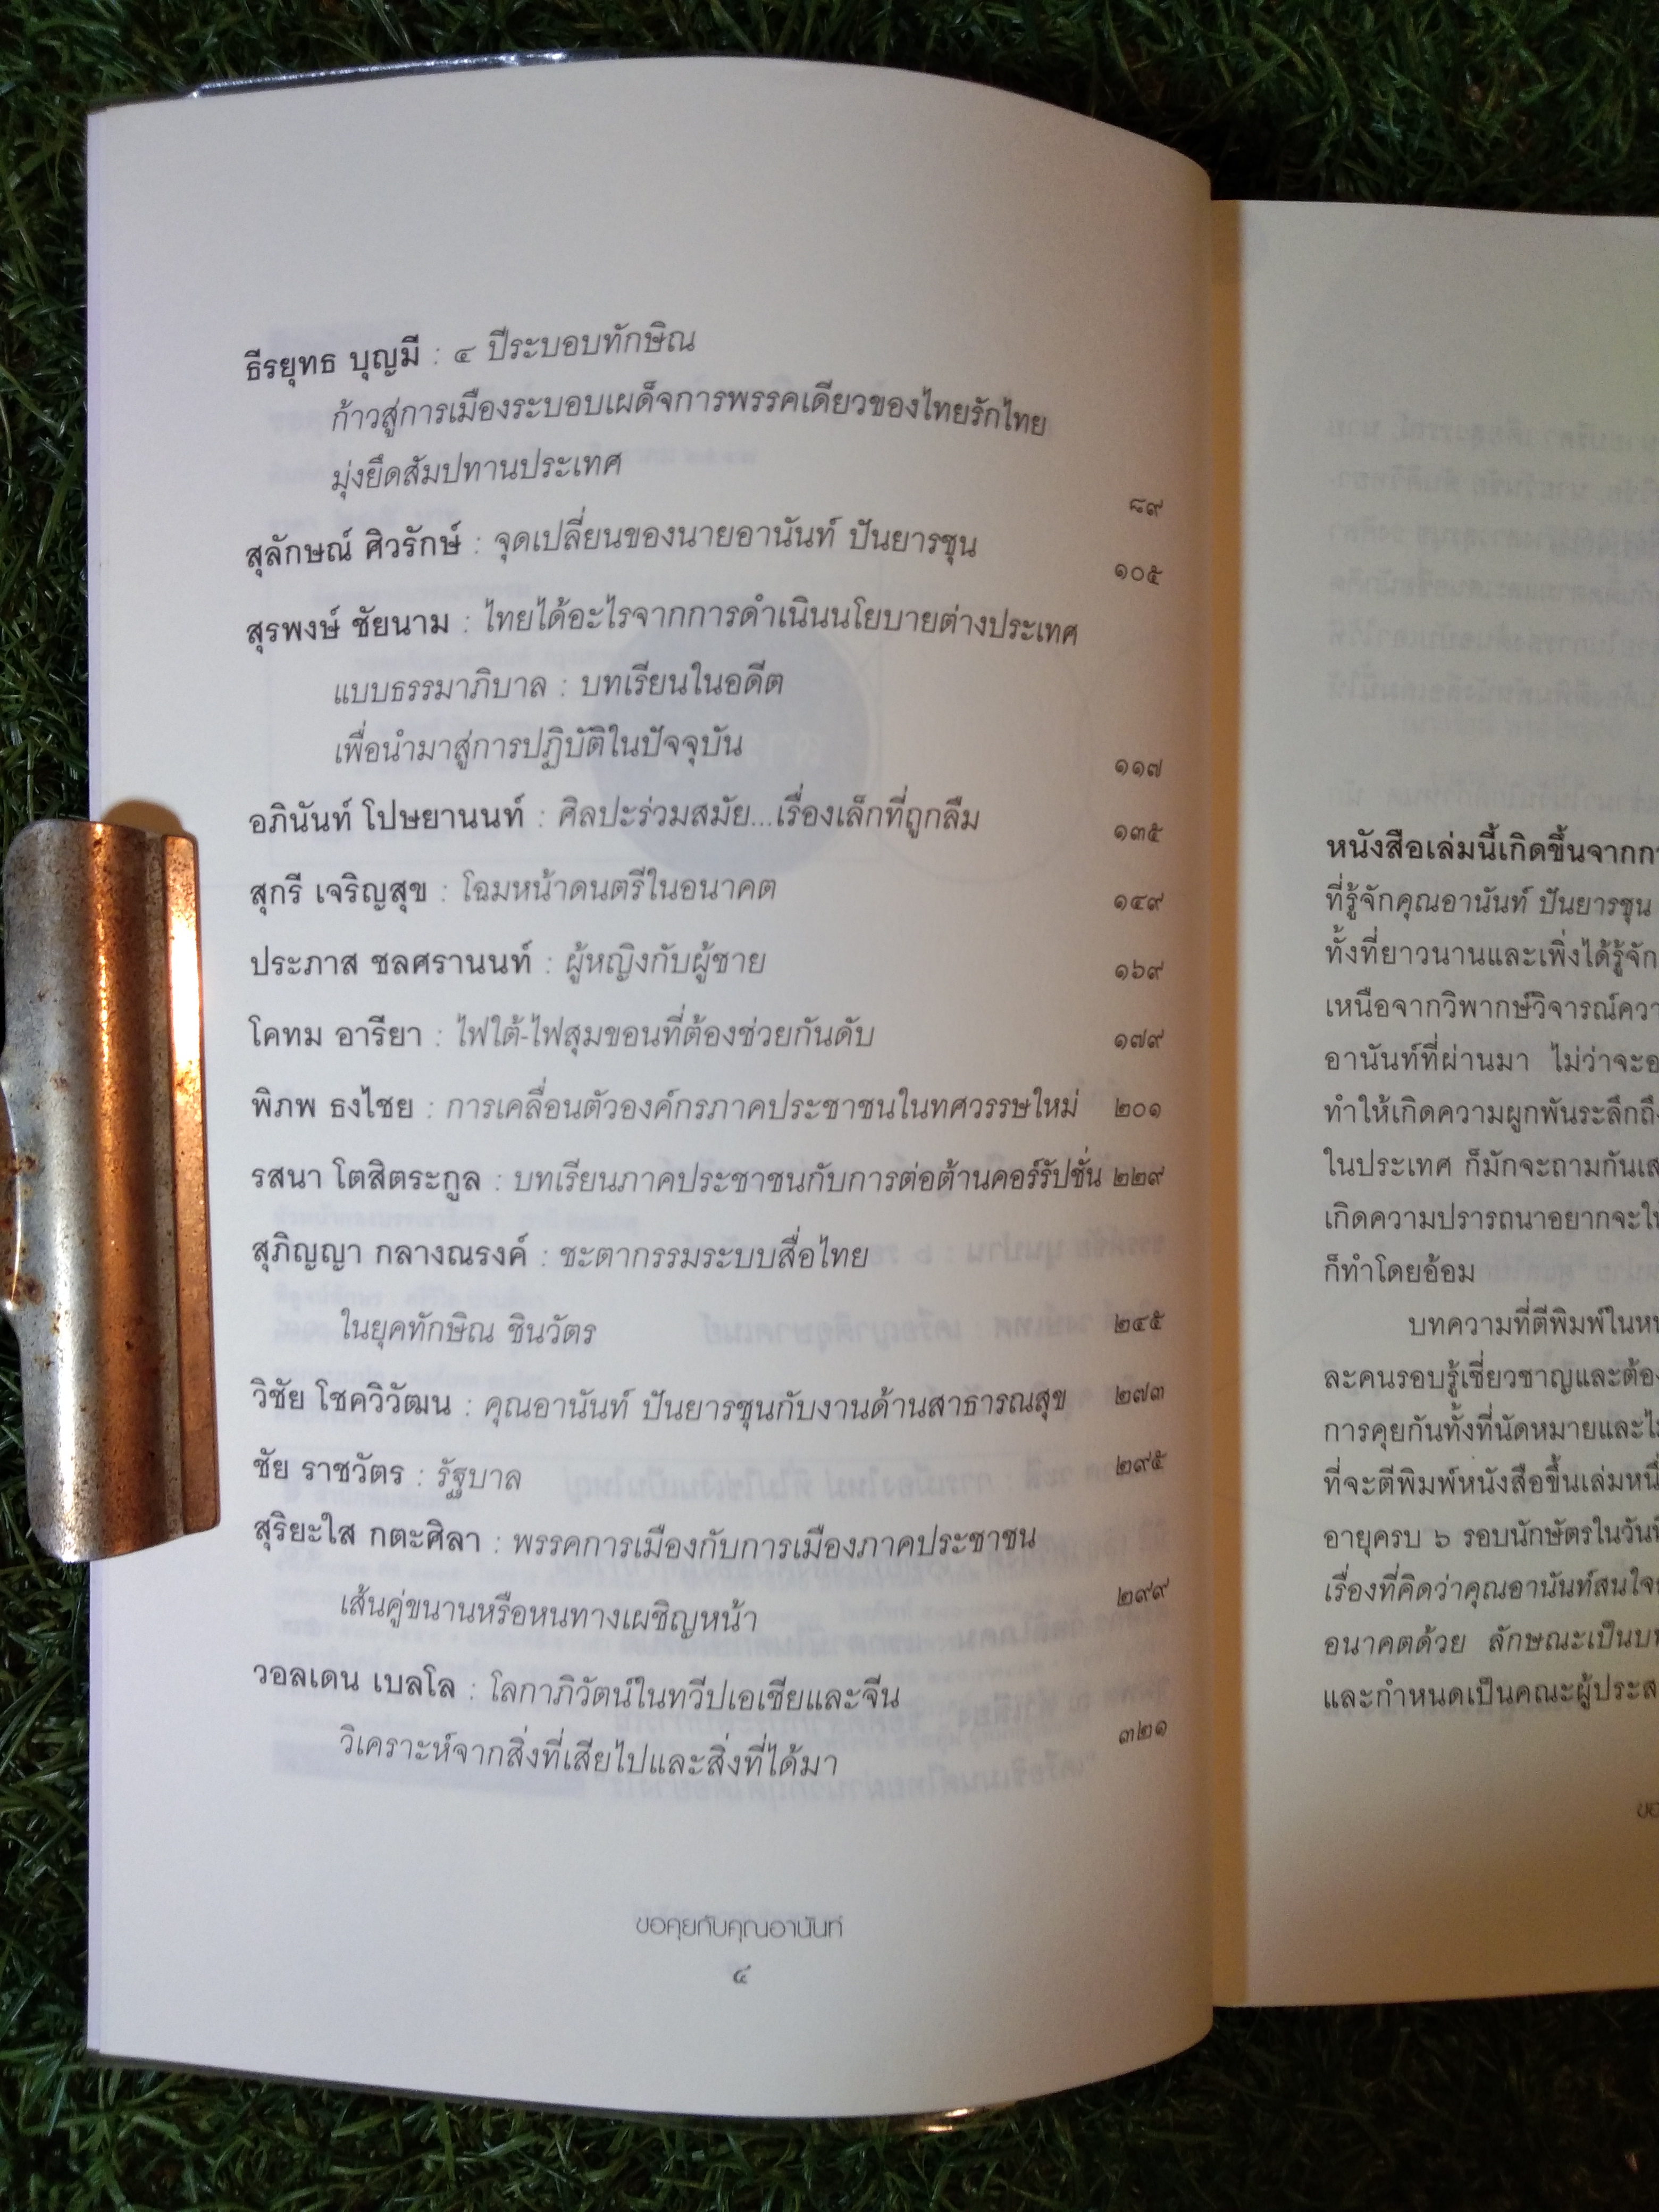 ธีรยุทธ บุญมี : ๔ ปีระบอบทักษิณ
ก้าวสู่การเมืองระบอบเผด็จการพรรคเดียวของไทยรักไทย
มุ่งยึดสัมปทานประเทศ ๘๙
สุลักษณ์ ศิวรักษ์ : จุดเปลี่ยนของนายอานันท์ ปันยารชุน ๑๐๕
สุรพงษ์ ชัยนาม : ไทยได้อะไรจากการดำเนินนโยบายต่างประเทศ
แบบธรรมาภิบาล : บทเรียนในอดีต
เพื่อนำมาสู่การปฏิบัติในปัจจุบัน ๑๑๗
อภินันท์ โปษยานนท์ : ศิลปะร่วมสมัย...เรื่องเล็กที่ถูกลืม ๑๓๕
สุกรี เจริญสุข : โฉมหน้าดนตรีในอนาคต ๑๔๙
ประภาส ชลศรานนท์ : ผู้หญิงกับผู้ชาย ๑๖๙
โคทม อารียา : ไฟใต้-ไฟสุมขอนที่ต้องช่วยกันดับ ๑๗๙
พิภพ ธงไชย : การเคลื่อนตัวองค์กรภาคประชาชนในทศวรรษใหม่ ๒๐๑
รสนา โตสิตระกูล : บทเรียนภาคประชาชนกับการต่อต้านคอร์รัปชั่น ๒๒๙
สุภิญญา กลางณรงค์ : ชะตากรรมระบบสื่อไทย
ในยุคทักษิณ ชินวัตร ๒๔๕
วิชัย โชควิวัฒน : คุณอานันท์ ปันยารชุนกับงานด้านสาธารณสุข ๒๗๓
ชัย ราชวัตร : รัฐบาล ๒๙๕
สุริยะใส กตะศิลา : พรรคการเมืองกับการเมืองภาคประชาชน
เส้นคู่ขนานหรือหนทางเผชิญหน้า ๒๙๙
วอลเดน เบลโล : โลกาภิวัตน์ในทวีปเอเชียและจีน
วิเคราะห์จากสิ่งที่เสียไปและสิ่งที่ได้มา ๓๒๑
ขอคุยกับคุณอานันท์
๔
หนังสือเล่มนี้เกิดขึ้นจากกา
ที่รู้จักคุณอานันท์ ปันยารชุน
ทั้งที่ยาวนานและเพิ่งได้รู้จัก
เหนือจากวิพากษ์วิจารณ์ควา
อานันท์ที่ผ่านมา ไม่ว่าจะอ
ทำให้เกิดความผูกพันระลึกถึง
ในประเทศ ก็มักจะถามกันเส
เกิดความปรารถนาอยากจะให
ก็ทำโดยอ้อม
บทความที่ตีพิมพ์ในหน
ละคนรอบรู้เชี่ยวชาญและต้อง
การคุยกันทั้งที่นัดหมายและไม
ที่จะตีพิมพ์หนังสือขึ้นเล่มหนึ่
อายุครบ ๖ รอบนักษัตรในวันที
เรื่องที่คิดว่าคุณอานันท์สนใจ
อนาคตด้วย ลักษณะเป็นบท
และกำหนดเป็นคณะผู้ประส
ขอ